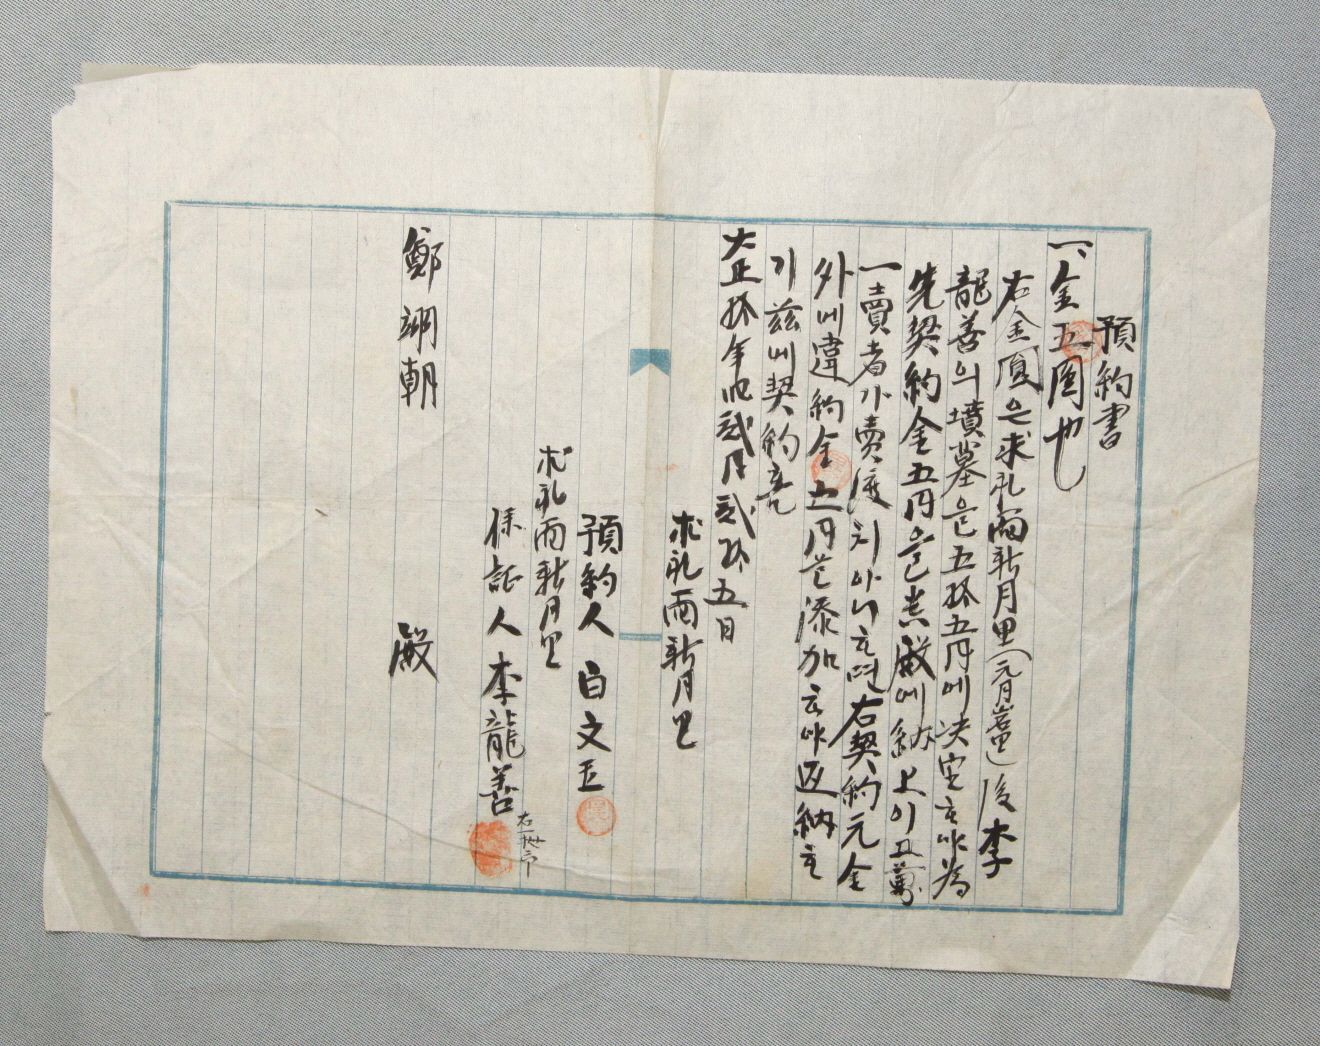 預約書
一、金五圓也
右金員은求礼面新月里後李
龍善의墳墓을五拾五円에決定하야為
先契約金五円을貴殿에納上이고萬
一賣者가賣渡치아니하면右契約元金
外에違約金五円을添加하야返納하
기茲에契約홈
大正拾年旧貳月貳拾五日
求礼面新月里
預約人 白文玉
求礼面新月里
保証人 李龍善
鄭翊朝 殿